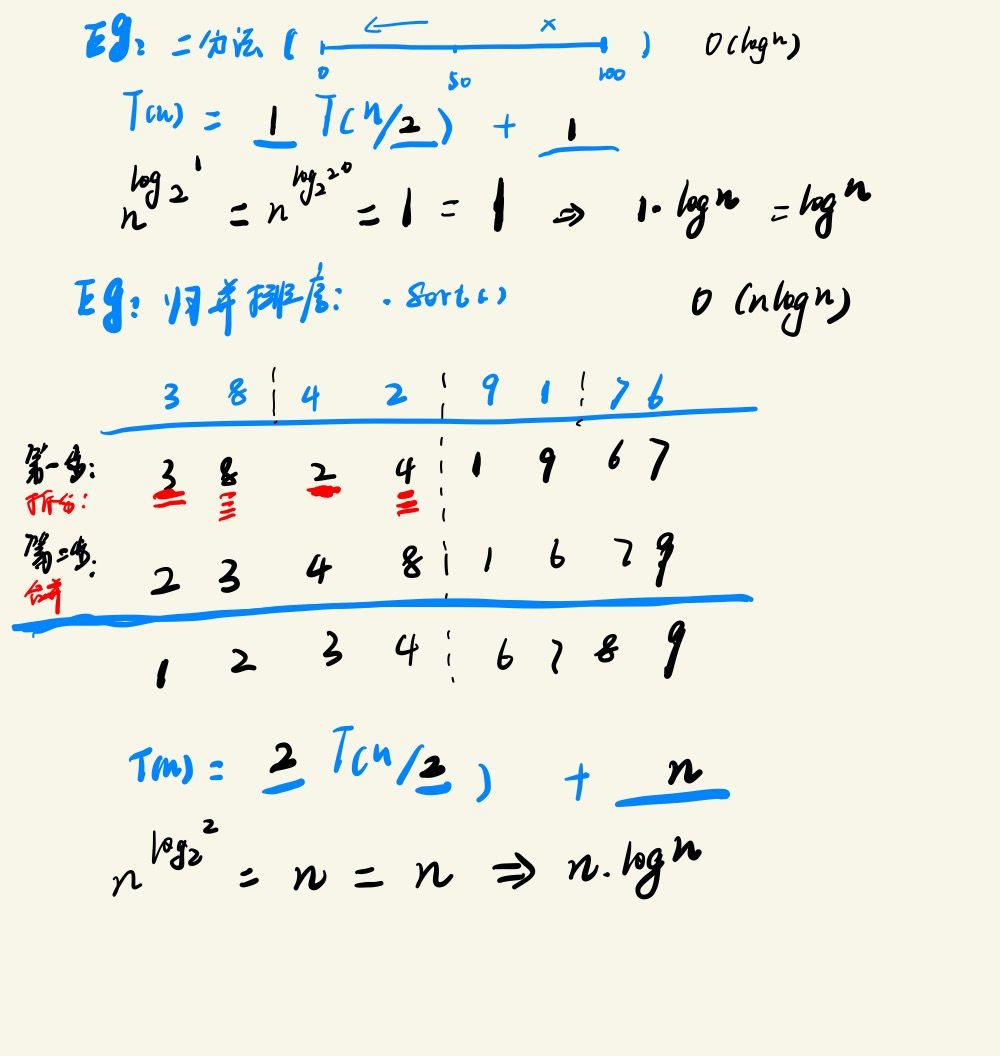 Eg: 二分法 ( 0 50 100 × ) O(logn)
T(n) = 1 T(n/2) + 1
n^log₂1 = n^log₂2^0 = 1 = 1 ⇒ 1·logn = logn
Eg: 归并排序: .sort() O(nlogn)
3 8 4 2 9 1 7 6
第一步: 3 8 2 4 1 9 6 7
拆分:
第二步: 2 3 4 8 1 6 7 9
合并
1 2 3 4 6 7 8 9
T(n) = 2 T(n/2) + n
n^log₂2 = n = n ⇒ n·logn